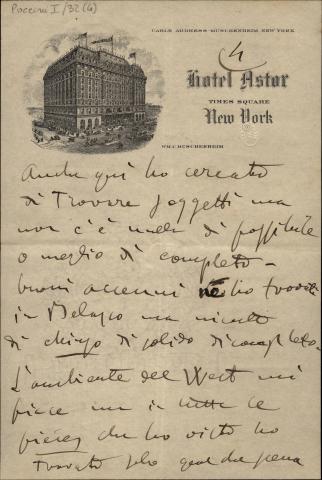 Puccini I/32(4)
CABLE ADDRESS-MUSCHENHEIM NEW YORK
4
Hotel Astor
TIMES SQUARE
New York
WM.C. MUSCHENHEIM
Anche qui ho cercato
di trovare soggetti ma
non c'è nulla di possibile
o meglio di completo –
buoni accenni ne ho trovati
in Belasco ma niente
di chiaro di solido di completo.
L'ambiente del West mi
piace ma in tutte le
pièces che ho visto ho
trovato solo qualche scena